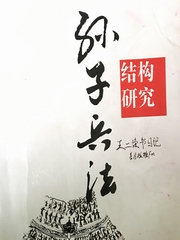 孙子兵法
结构
研究